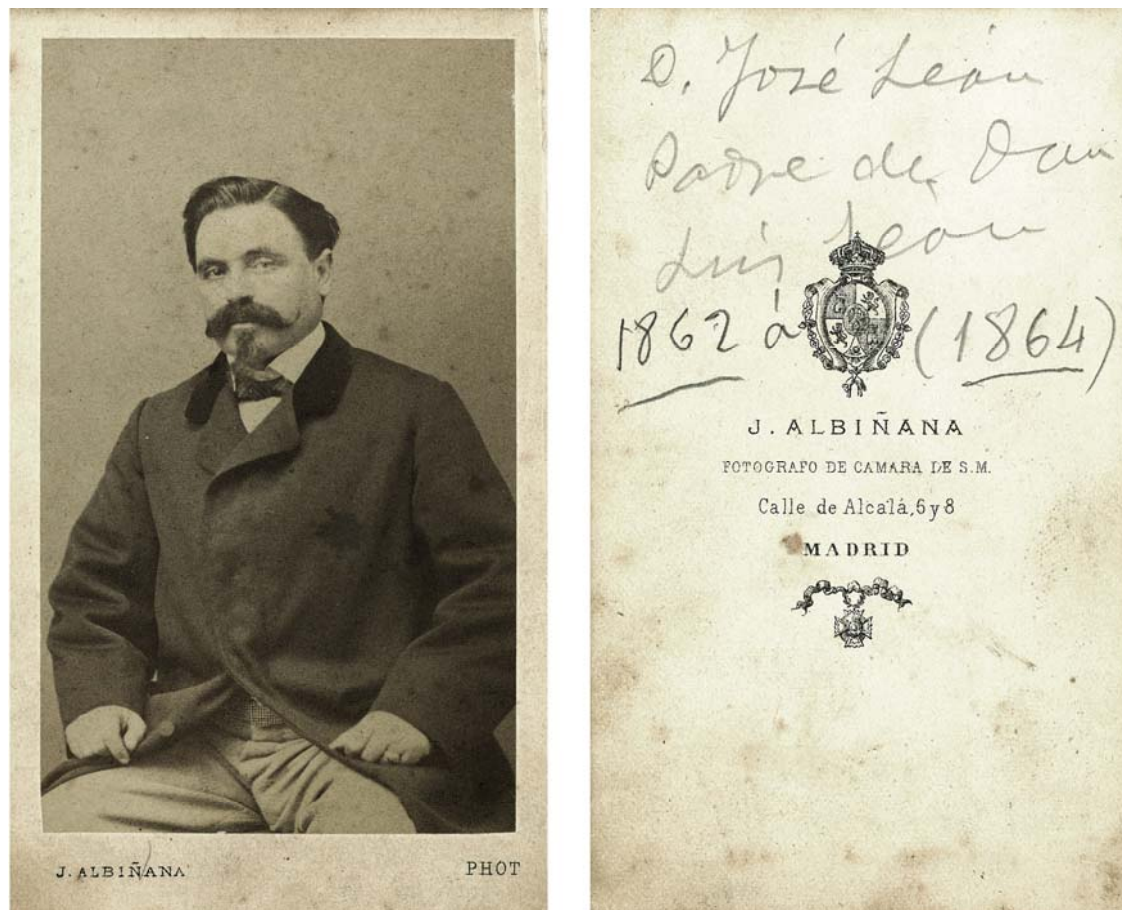 J. ALBIÑANA
PHOT
D. José León
Padre de Don
Luis León
1862 á (1864)
J. ALBIÑANA
FOTOGRAFO DE CAMARA DE S.M.
Calle de Alcalá, 6 y 8
MADRID